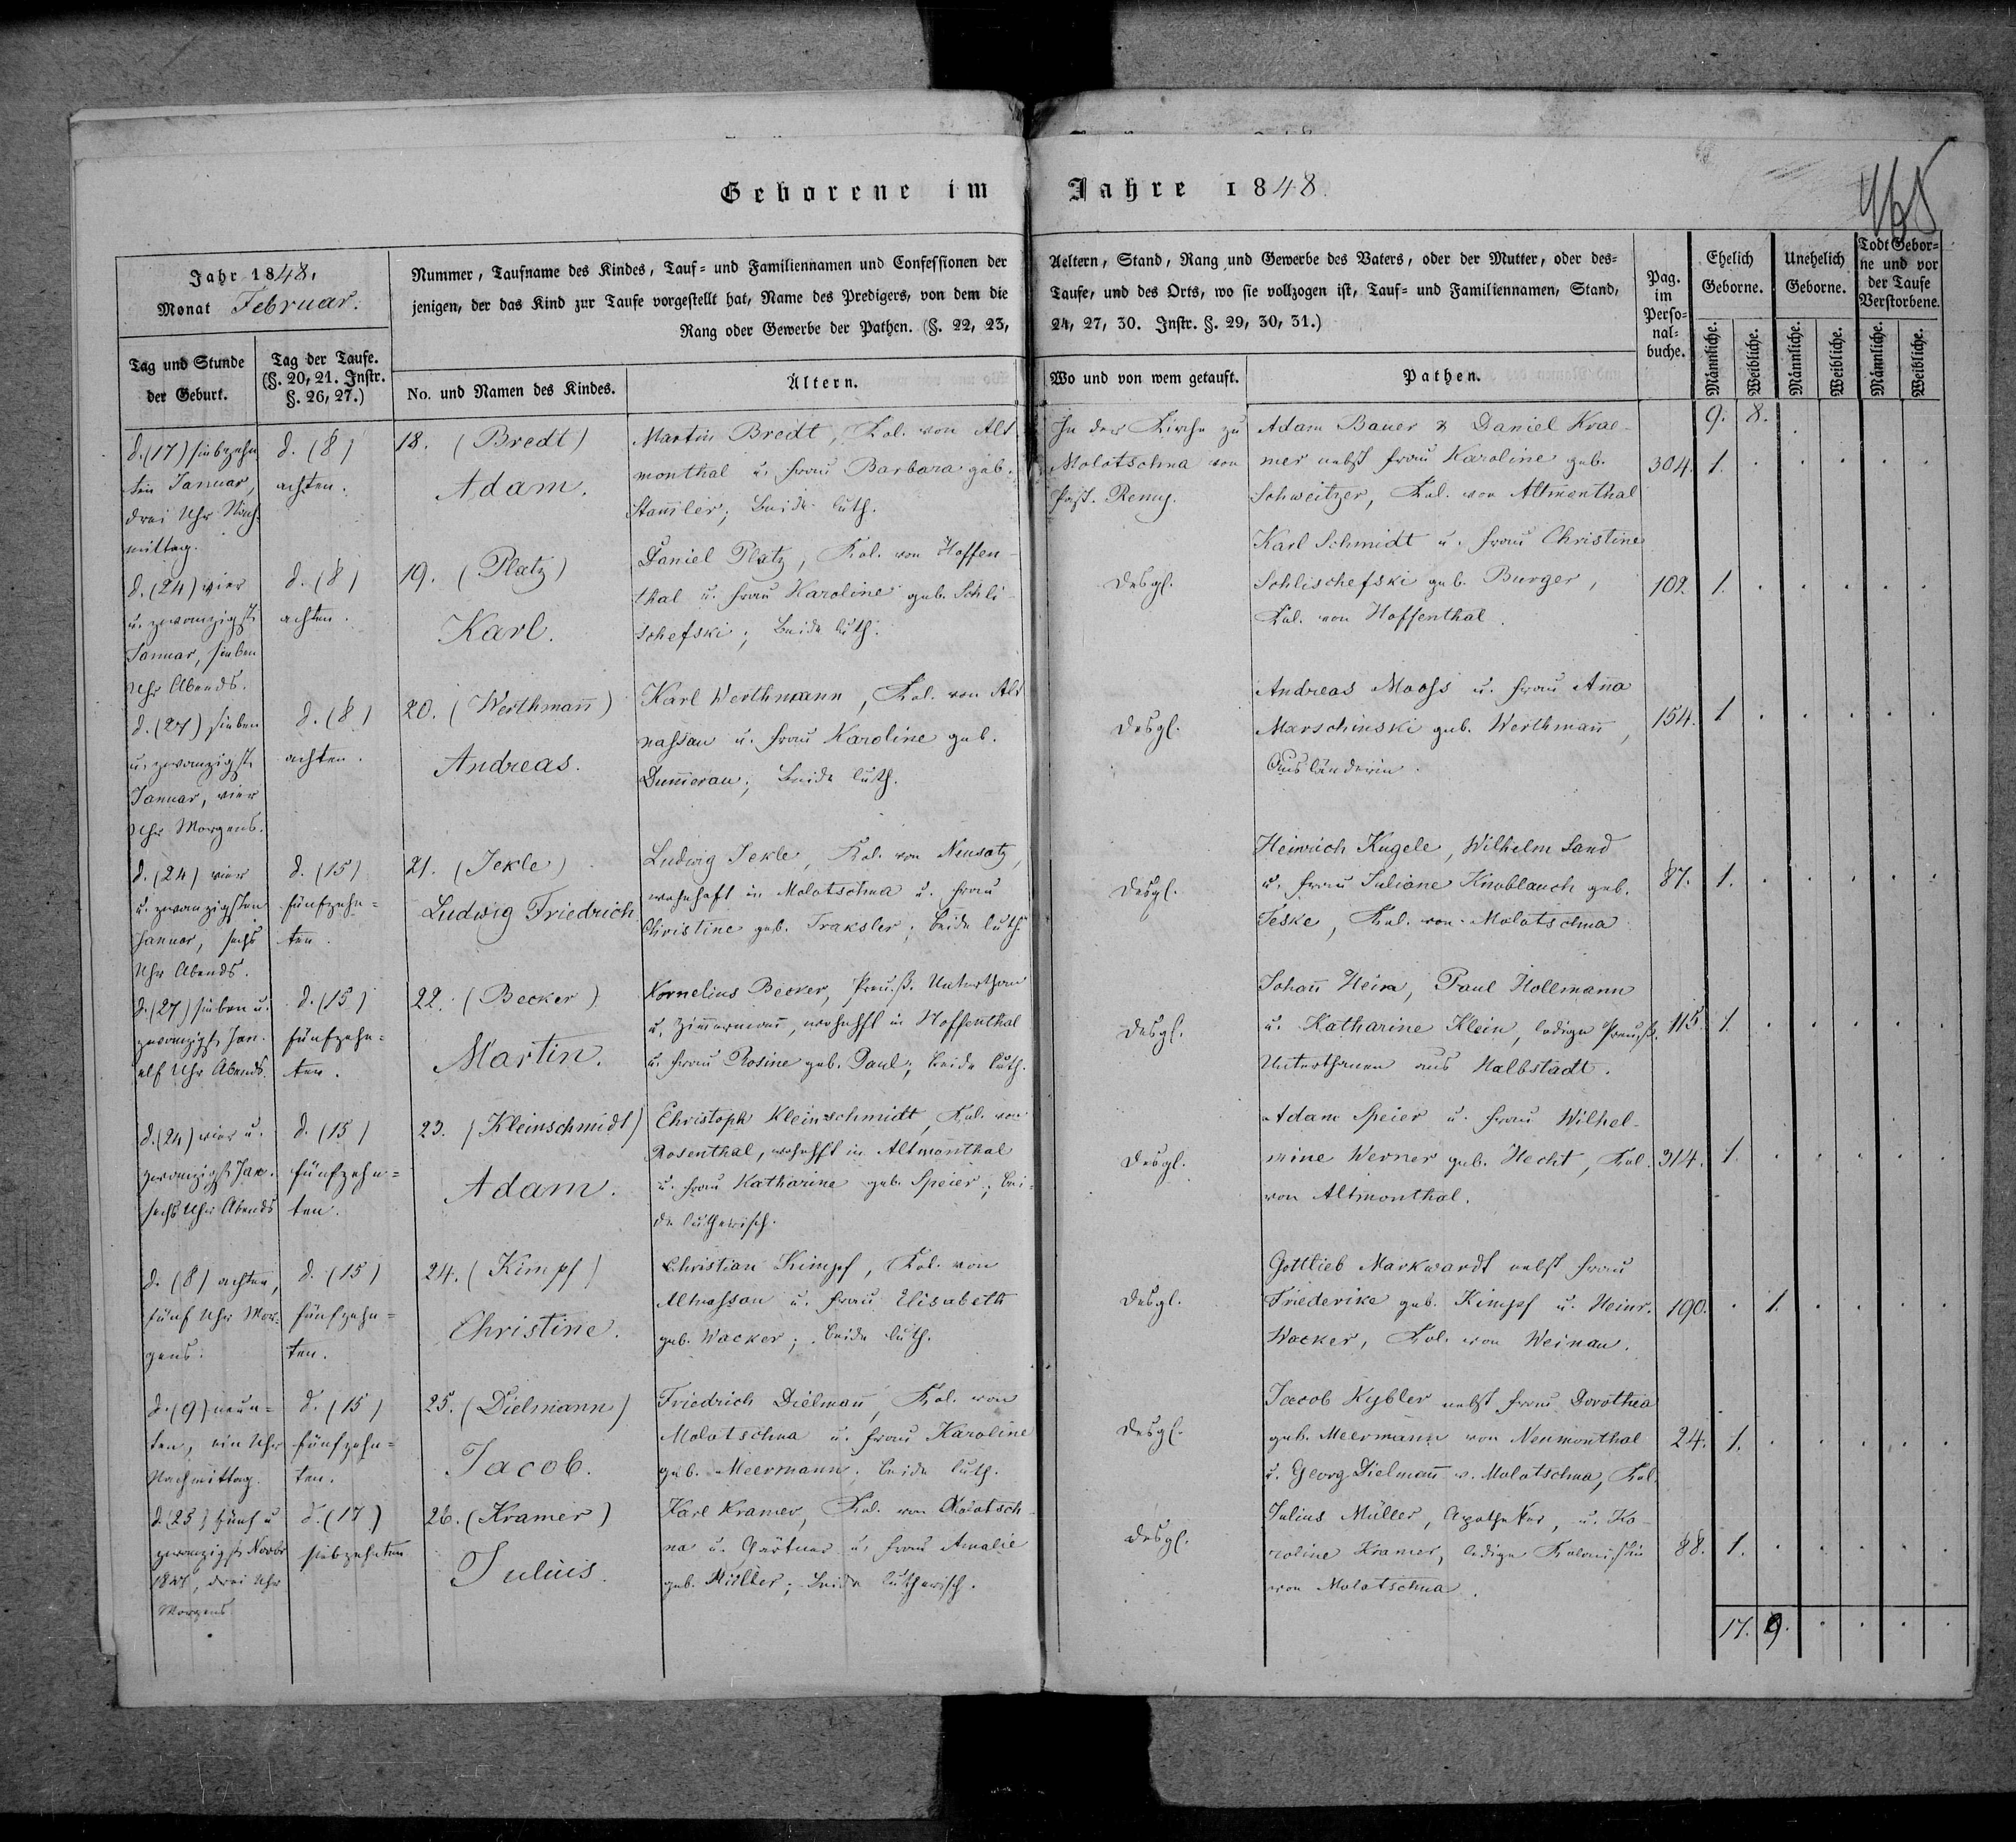 Geborene im Jahre 1848.
465
Jahr 1848.
Monat Februar.
Nummer, Taufname des Kindes, Tauf- und Familiennamen und Confessionen der Aeltern, Stand, Rang und Gewerbe des Vaters, oder der Mutter, oder des-
jenigen, der das Kind zur Taufe vorgestellt hat, Name des Predigers, von dem die Taufe, und des Orts, wo sie vollzogen ist, Tauf- und Familiennamen, Stand,
Rang oder Gewerbe der Pathen. (§. 22, 23, 24, 27, 30. Instr. §. 29, 30, 31.)
Pag.
im
Perso-
nal-
buche.
Ehelich
Geborne.
Unehelich
Geborne.
Todt Gebor-
ne und vor
der Taufe
Verstorbene.
Tag und Stunde
der Geburt.
Tag der Taufe.
(§. 20, 21. Instr.
§. 26, 27.)
No. und Namen des Kindes.
Ältern.
Wo und von wem getauft.
Pathen.
Männliche. Weibliche. Männliche. Weibliche. Männliche. Weibliche.
9. 8.
d. (17) siebzehn
ten Januar,
drei Uhr Nach-
mittag.
d. (8)
achten.
18. (Bredt)
Adam.
Martin Bredt, Kol. von Alt
monthal u. Frau Barbara geb.
Stam̄ler; beide luth.
In der Kirche zu
Molotschna von
Past. Remy.
Adam Bauer & Daniel Krae-
mer nebst Frau Karoline geb.
Schweitzer, Kol. von Altmonthal
304. 1.
d. (24) vier
u. zwanzigst.
Januar, sieben
Uhr Abends.
d. (8)
achten.
19. (Platz)
Karl.
Daniel Platz, Kol. von Hoffen-
thal u. Frau Karoline geb. Schli-
schefski; beide luth.
desgl.
Karl Schmidt u. Frau Christine
Schlischefski geb. Burger,
Kol. von Hoffenthal.
102. 1.
d. (27) sieben
u. zwanzigst.
Januar, vier
Uhr Morgens.
d. (8)
achten.
20. (Werthman̄)
Andreas.
Karl Werthmann, Kol. von Alt
nassau u. Frau Karoline geb.
Dum̄erau; beide luth.
desgl.
Andreas Mooss u. Frau An̄a
Marschinski geb. Werthman̄,
Ausländerin.
154. 1
d. (24) vier
u. zwanzigsten
Januar, sechs
Uhr Abends.
d. (15)
fünfzehn-
ten.
21. (Jekle)
Ludwig Friedrich
Ludwig Jekle, Kol. von Neusatz,
wohnhaft in Molotschna u. Frau
Christine geb. Traksler; beide luth.
desgl.
Heinrich Kugele, Wilhelm Sand
u. Frau Juliane Knoblauch geb.
Jeske, Kol. von Molotschna
87. 1.
d. (27) sieben u.
zwanzigst. Jan.
elf Uhr Abends.
d. (15)
fünfzehn-
ten.
22. (Becker)
Martin.
Kornelius Becker, Preuß. Unterthan
u. Zim̄erman̄, wohnhft in Hoffenthal
u. Frau Rosine geb. Paul; beide luth.
desgl.
Johan̄ Hein, Paul Hollmann
u. Katharine Klein, ledige Preuß.
Unterthanen aus Halbstadt.
115. 1.
d. (24) vier u.
zwanzigst. Jan.
sechs Uhr Abends
d. (15)
fünfzehn-
ten.
23. (Kleinschmidt)
Adam.
Christoph Kleinschmidt, Kol. von
Rosenthal, wohnhft in Altmonthal
u. Frau Katharine geb. Speier; bei-
de lutherisch.
desgl.
Adam Speier u. Frau Wilhel-
mine Werner geb. Hecht, Kol.
von Altmonthal.
314. 1.
d. (8) achten,
fünf Uhr Mor-
gens.
d. (15)
fünfzehn-
ten.
24. (Kimpf)
Christine.
Christian Kimpf, Kol. von
Altnassau u. Frau Elisabeth
geb. Wacker; beide luth.
desgl.
Gottlieb Markwardt nebst Frau
Friederike geb. Kimpf u. Heinr.
Wacker, Kol. von Weinau.
190. 1.
d. (9) neun-
ten, ein Uhr
Nachmittag.
d. (15)
fünfzehn-
ten.
25. (Dielmann)
Jacob.
Friedrich Dielman̄, Kol. von
Molotschna u. Frau Karoline
geb. Meermann. beide luth.
desgl.
Jacob Kybler nebst Frau Dorothea
geb. Meermann von Neumonthal
u. Georg Dielman̄ v. Molotschna, Kol.
24. 1.
d. (25) fünf u
zwanzigst. Novbr
1847, drei Uhr
Morgens
d. (17)
siebzehnten
26. (Kramer)
Julius.
Karl Kramer, Kol. von Molotsch
na u. Gärtner u. Frau Amalie
geb. Müller; beide lutherisch.
desgl.
Julius Müller, Apotheker, u. Ka-
roline Kramer, ledige Kolonistin
von Molotschna.
88. 1.
17. 9.